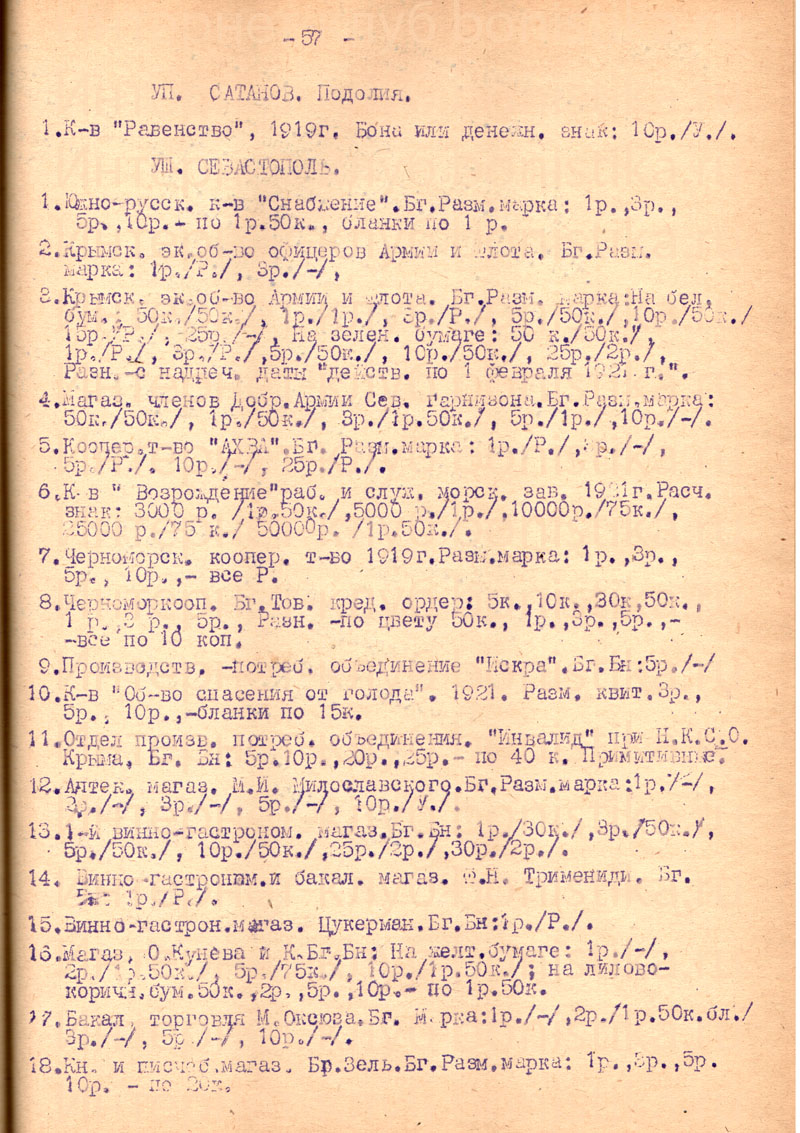 - 57 -
УП. САТАНОВ. Подолия.
1.К-в "Равенство", 1919г. Бона или денежн. знак: 10р./У./.
УШ. СЕВАСТОПОЛЬ.
1.Южно-русск. к-в "Снабжение".Бг.Разм.марка: 1р.,3р.,
5р.,10р.- по 1р.50к., бланки по 1 р.
2.Крымск. эк.об-во офицеров Армии и Флота. Бг.Разм.
марка: 1р./Р./, 3р./-/,
3.Крымск. эк.об-во Армии и Флота. Бг.Разм. марка:На бел.
бум.: 50к./50к./, 1р./1р./, 3р./Р./, 5р./50к./,10р./50к./
15р./Р./, 25р./-/, На зелен. бумаге: 50 к./50к./,
1р./Р./, 3р./Р./,5р./50к./, 10р./50к./, 25р./2р./,
Разн.-с надпеч. даты "действ. по 1 февраля 1921 г.".
4.Магаз. членов Добр.Армии Сев. гарнизона.Бг.Разм.марка:
50к./50к./, 1р./50к./, 3р./1р.50к./, 5р./1р./,10р./-/.
5.Коопер.т-во "АХЗА".Бг. Разм.марка: 1р./Р./,3р./-/,
5р./Р./. 10р./-/, 25р./Р./.
6.К-в " Возрождение"раб. и служ. морск. зав. 1921г.Расч.
знак: 3000 р. /1р.50к./,5000 р./1р./,10000р./75к./,
25000 р./75 к./ 50000р. /1р.50к./.
7.Черноморск. коопер. т-во 1919г.Разм.марка: 1р.,3р.,
5р., 10р.,- все Р.
8.Черноморкооп. Бг.Тов. кред. ордер: 5к.,10к.,30к,50к.,
1 р.,3 р., 5р., Разн. -по цвету 50к., 1р.,3р.,5р.,-
-все по 10 коп.
9.Производств. -потреб. объединение "Искра".Бг.Бн:5р./-/
10.К-в "Об-во спасения от голода". 1921. Разм. квит.3р.,
5р., 10р.,-бланки по 15к.
11.Отдел произв. потреб. объединения. "Инвалид" при Н.К.С.О.
Крыма, Бг. Бн: 5р.10р.,20р.,25р.- по 40 к. Примитивные.
12.Аптек. магаз. М.И. Милославского.Бг.Разм.марка:1р./-/,
2р./-/, 3р./-/, 5р./-/, 10р./У./.
13.1-й винно-гастроном. магаз.Бг.Бн: 1р./30к./,3р./50к./,
5р./50к./, 10р./50к./,25р./2р./,30р./2р./.
14. Винно-гастроном.и бакал. магаз. Ф.Н. Трименидi. Бг.
Бн: 1р./Р./.
15.Винно-гастрон.магаз. Цукерман.Бг.Бн:1р./Р./.
16.Магаз. О.Кунева и К.Бг.Бн: На желт.бумаге: 1р./-/,
2р./1р.50к./, 5р./75к./, 10р./1р.50к./; на лилово-
коричн.бум.50к.,2р.,5р.,10р.- по 1р.50к.
17.Бакал. торговля М.Оксюза.Бг. Марка:1р./-/,2р./1р.50к.бл./
3р./-/, 5р./-/, 10р./-/.
18.Кн. и писчеб.магаз. Бр.Зель.Бг.Разм.марка: 1р.,3р.,5р.
10р. - по 30к.